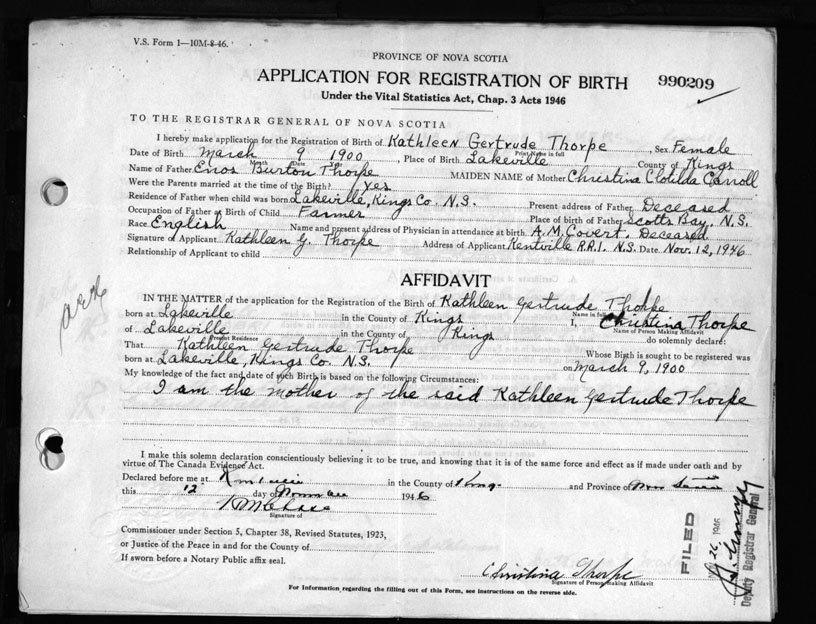 V.S. Form 1—10M-8-46.
PROVINCE OF NOVA SCOTIA
APPLICATION FOR REGISTRATION OF BIRTH 990209
Under the Vital Statistics Act, Chap. 3 Acts 1946
TO THE REGISTRAR GENERAL OF NOVA SCOTIA
I hereby make application for the Registration of Birth of Kathleen Gertrude Thorpe, Sex Female
Print Name in full
Date of Birth March 9 1900, Place of Birth Lakeville County of Kings
Month Date Year
Name of Father Enos Burton Thorpe MAIDEN NAME of Mother Christina Clotilda Carroll
Were the Parents married at the time of the Birth? Yes
Residence of Father when child was born Lakeville, Kings Co. N.S. Present address of Father Deceased
Occupation of Father at Birth of Child Farmer Place of birth of Father Scotts Bay, N.S.
Race English Name and present address of Physician in attendance at birth A.M. Covert. Deceased
Signature of Applicant Kathleen G. Thorpe Address of Applicant Kentville R.R.1. N.S. Date Nov. 12, 1946
Relationship of Applicant to child
AFFIDAVIT
IN THE MATTER of the application for the Registration of the Birth of Kathleen Gertrude Thorpe
Name in full
born at Lakeville in the County of Kings I, Christina Thorpe
Name of Person Making Affidavit
of Lakeville in the County of Kings do solemnly declare:
Present Residence
That Kathleen Gertrude Thorpe Whose Birth is sought to be registered was
born at Lakeville, Kings Co. N.S. on March 9, 1900
My knowledge of the fact and date of such Birth is based on the following Circumstances:
I am the mother of the said Kathleen Gertrude Thorpe
I make this solemn declaration conscientiously believing it to be true, and knowing that it is of the same force and effect as if made under oath and by
virtue of The Canada Evidence Act.
Declared before me at in the County of Kings and Province of Nova Scotia
this 12 day of November 1946
Signature of
Commissioner under Section 5, Chapter 38, Revised Statutes, 1923,
or Justice of the Peace in and for the County of
If sworn before a Notary Public affix seal.
Christina Thorpe
Signature of Person making Affidavit
For Information regarding the filling out of this Form, see instructions on the reverse side.
FILED
Deputy Registrar General